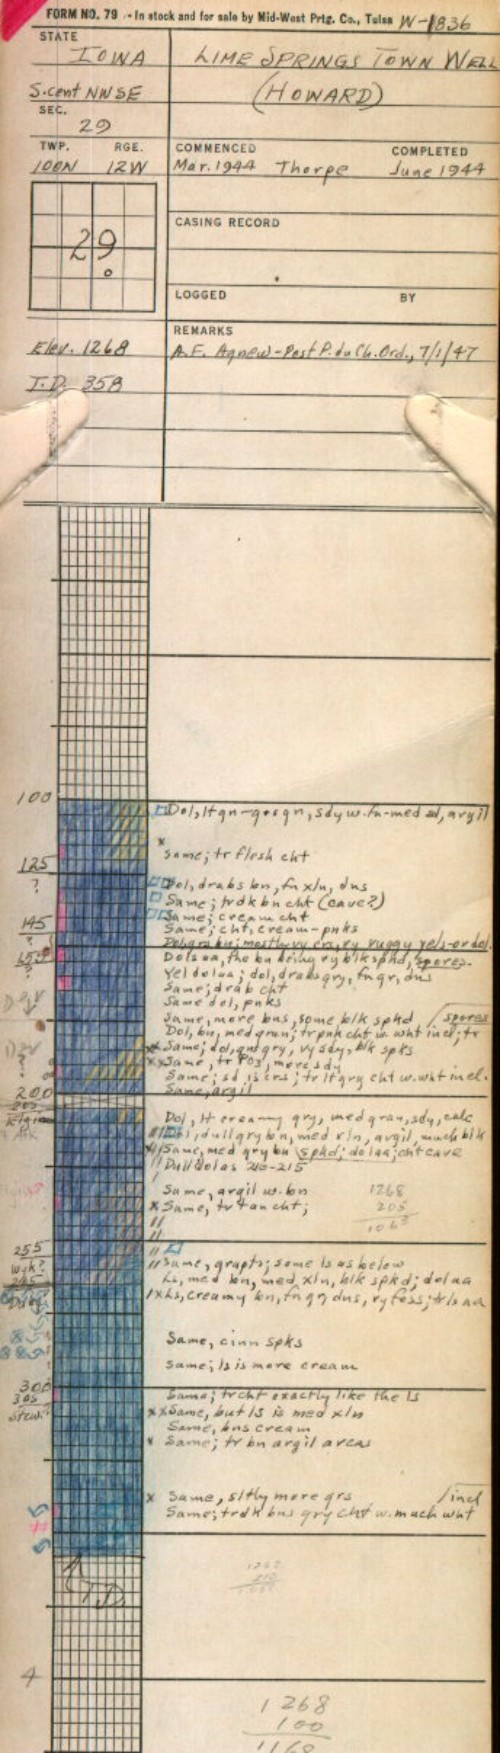 FORM NO. 79 - In stock and for sale by Mid-West Prtg. Co., Tulsa W-1836
STATE
IOWA
LIME SPRINGS TOWN WELL
S.cent NWSE
(HOWARD)
SEC.
29
TWP. RGE.
100N 12W
COMMENCED COMPLETED
Mar. 1944 Thorpe June 1944
CASING RECORD
29
LOGGED BY
REMARKS
Elev. 1268
A.F. Agnew - Post P. du Ch. Ord., 7/1/47
T.D. 358
100
Dol, ltgn-grsgn, sdy w. fn-med sd, argil
Same; tr flesh cht
125
?
Dol, drabs bn, fn xln, dns
Same; trdk bn cht (cave?)
Same; cream cht
145
Same; cht, cream-pnks
Dol aa,
blk spkd, spores.
Yel dol aa; dol, drabs gry, fngr, dns
Same; drab cht
Same dol, pnks
Same, more bns, some blk spkd spores
Dol, bn, med gran; tr pnk cht w. wht incl; tr
Same; dol, gry, vy sdy, blk spks
Same, tr more sdy
Same; sd is crs; tr ltgry cht w. wht incl.
200
Same, argil
Dol, lt creamy gry, med gran, sdy, calc
Dol, dull gry bn, med xln, argil, much blk
Same, med gry bn spkd; dol aa; cht cave
Dull dol as 210-215
Same, argil w. bn
1268
Same, tr tan cht;
205
1063
255
Same, grapts; some ls as below
Ls, med bn, med xln, blk spkd; dol aa
Ls, creamy bn, fngr, dns, vy foss; tr ls aa
Same, cinn spks
Same; ls is more cream
300
305
Same; trcht exactly like the ls
Same, but ls is med xln
Same, bns cream
Same; tr bn argil areas
Same, sltly more grs incl
Same; trdk bns gry cht w. much wht
T.D.
4
1268
100
1168